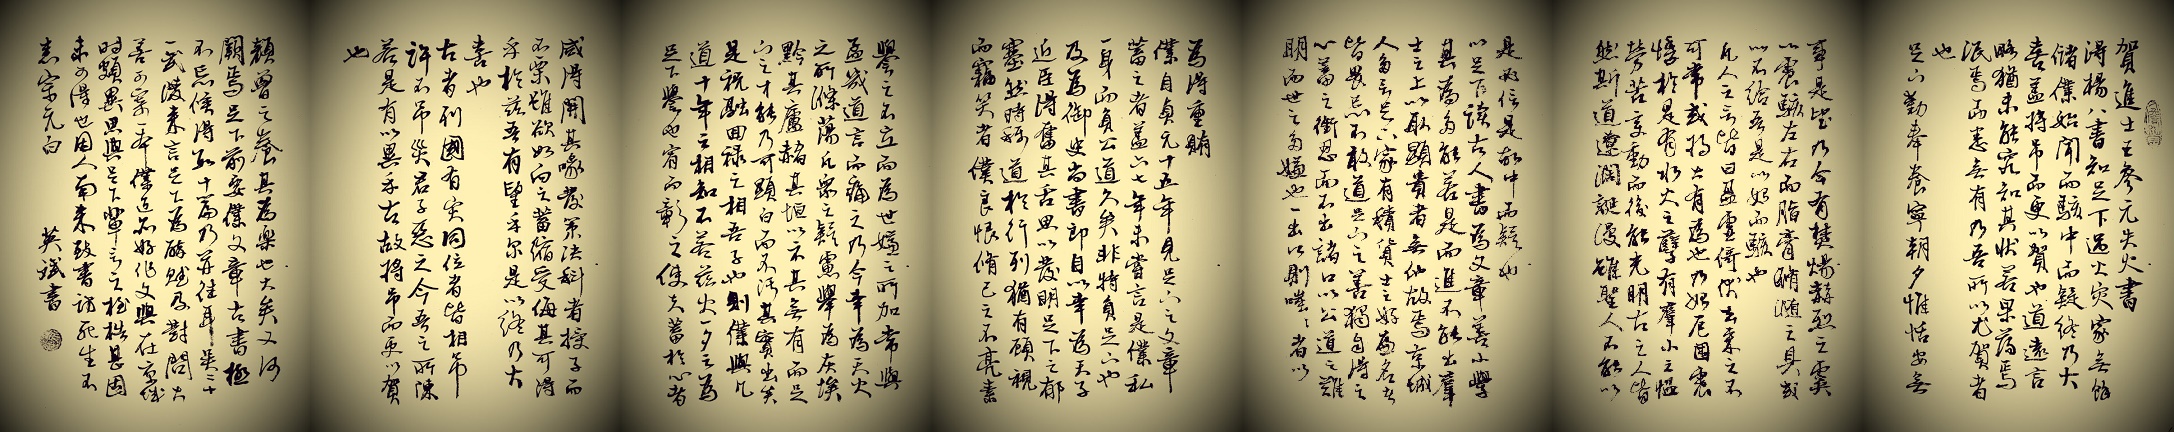 賀進士王參元失火書
得楊八書知足下遇火災家無餘
儲僕始聞而駭中而疑終乃大
喜蓋將吊而更以賀也道遠言
略猶未能究知其狀若果蕩焉
泯焉而悉無有乃吾所以尤賀者
也
足下勤奉養寧朝夕惟恬安無
事是望乃今有焚煬赫烈之虞
以震駭左右而脂膏滫瀡之具或
以不給吾是以始而駭也
凡人之言皆曰盈虛倚伏去來之不
可常或將大有為也乃始厄困震
悸於是有水火之孽有羣小之慍
勞苦變動而後能光明古之人皆
然斯道遼闊誕漫雖聖人不能以
是必信是故中而疑也
以足下讀古人書為文章善小學
其為多能若是而進不能出羣
士之上以取顯貴者無他故焉京城
人多言足下家有積貨士之好廉名者
皆畏忌不敢道足下之善獨自得之
心蓄之銜忍而不出諸口以公道之難
明而世之多嫌也一出口則嗤嗤者以
為得重賂
僕自貞元十五年見足下之文章
蓄之者蓋六七年未嘗言是僕私
一身而負公道久矣非特負足下也
及為御史尚書郎自以幸為天子
近臣得奮其舌思以發明足下之郁
塞然時稱道於行列猶有顧視
而竊笑者僕良恨脩己之不亮素
譽之不立而為世嫌之所加常與
孟幾道言而痛之乃今幸為天火
之所滌蕩凡眾之疑慮舉為灰埃
黔其廬赭其垣以示其無有而足
下之才能乃可顯白而不污其實出矣
是祝融回祿之相吾子也則僕與几
道十年之相知不若茲火一夕之為
足下譽也宥而彰之使夫蓄於心者
咸得開其喙發策決科者授子而
不栗雖欲如向之蓄縮受侮其可得
乎於茲吾有望乎爾是以終乃大
喜也
古者列國有災同位者皆相吊
許不吊災君子惡之今吾之所陳
若是有以異乎古故將吊而更以賀
也
顏曾之養其為樂也大矣又何
闕焉足下前要僕文章古書極
不忘候得數十篇乃并往耳吳二十
一武陵來言足下為醉賦及對問大
善可寄一本僕近亦好作文與在京城
時頗異思與足下輩言之桎梏甚固
未可得也因人南來致書訪死生不
悉宗元白
英斌書